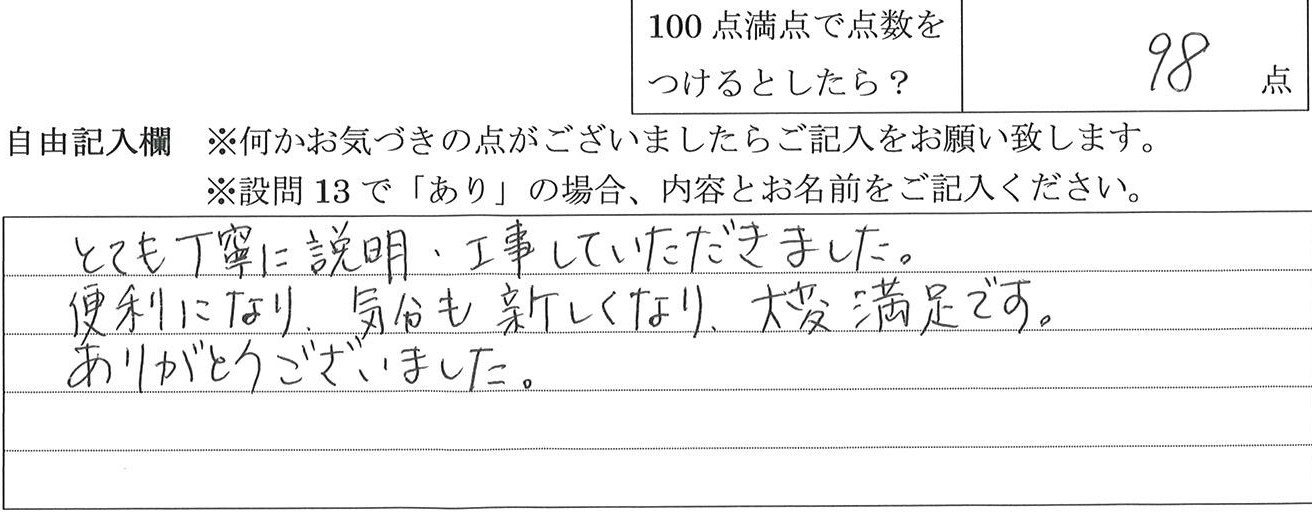 100点満点で点数を
つけるとしたら？
98 点
自由記入欄 ※何かお気づきの点がございましたらご記入をお願い致します。
※設問13で「あり」の場合、内容とお名前をご記入ください。
とても丁寧に説明・工事していただきました。
便利になり、気分も新しくなり、大変満足です。
ありがとうございました。